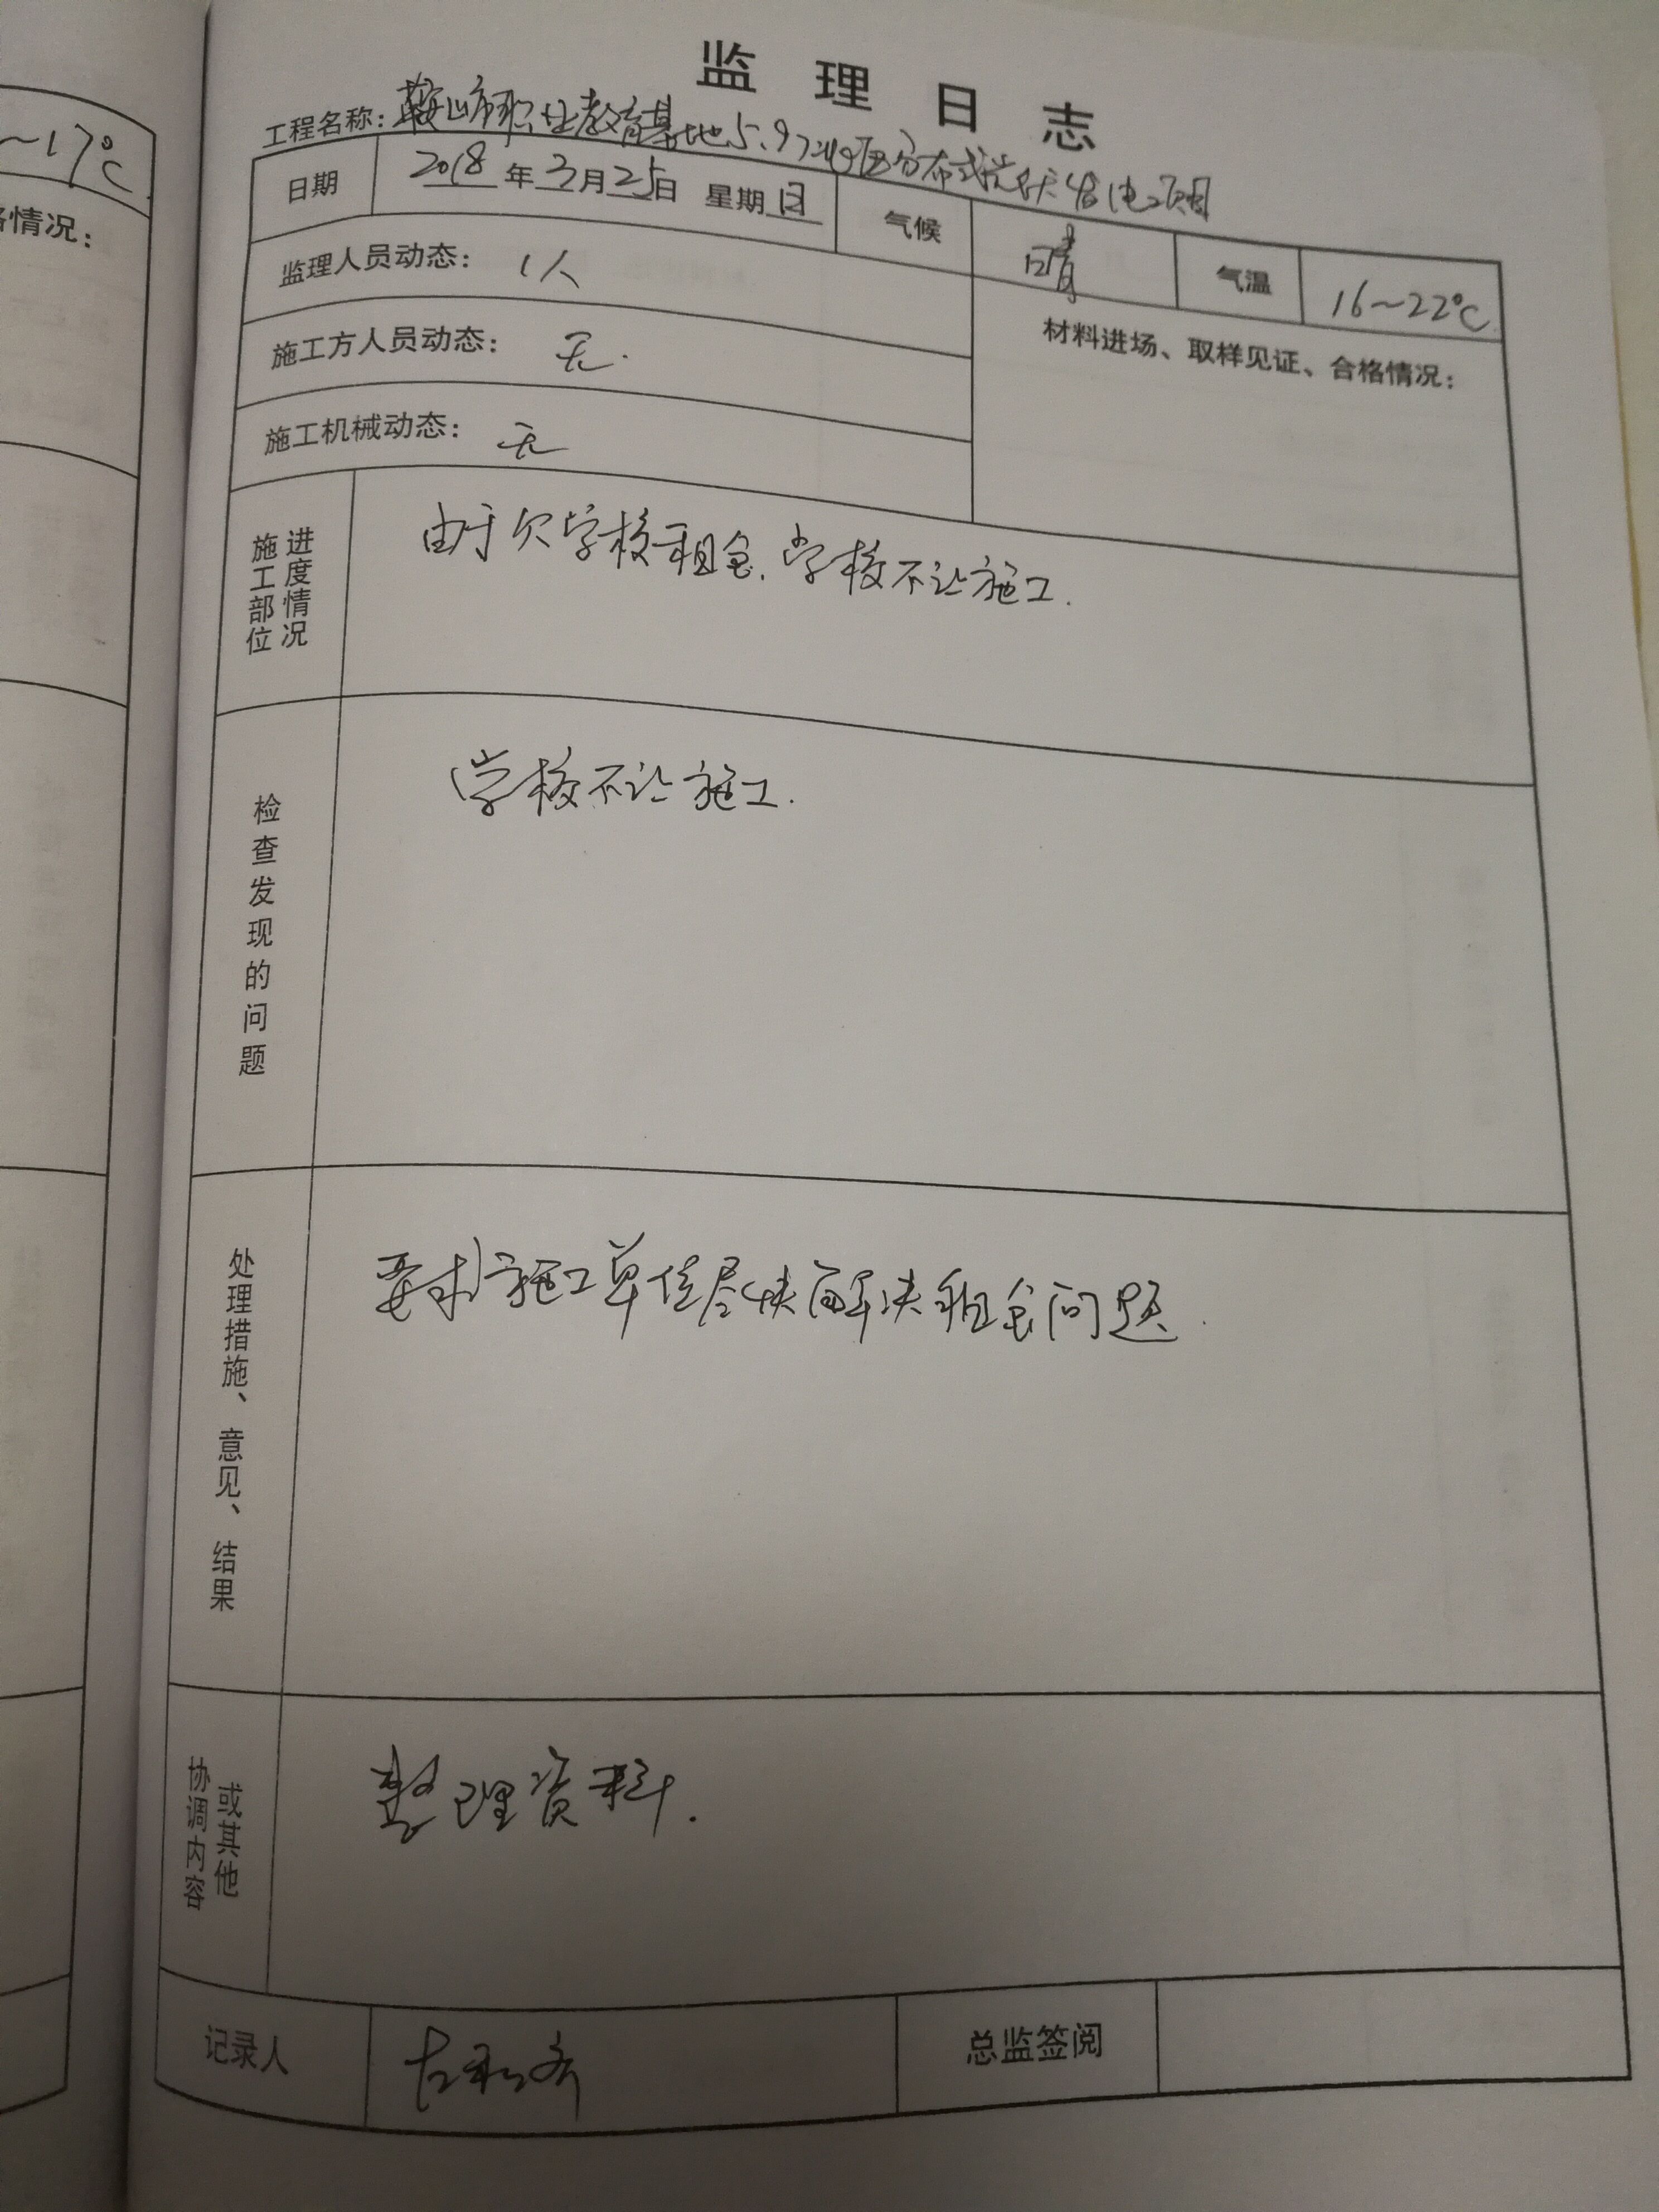 ~17℃
格情况：
监理日志
工程名称：鞍山市职业教育基地5.972兆瓦分布式光伏发电项目
日期 2018年3月25日 星期日 气候 晴 气温 16~22℃
监理人员动态： 1人
材料进场、取样见证、合格情况：
施工方人员动态： 无.
施工机械动态： 无
施工部位
进度情况
由于欠学校租金.学校不让施工.
检查发现的问题
学校不让施工.
处理措施、意见、结果
要求施工单位尽快解决租金问题.
协调内容
或其他
整理资料.
记录人
总监签阅